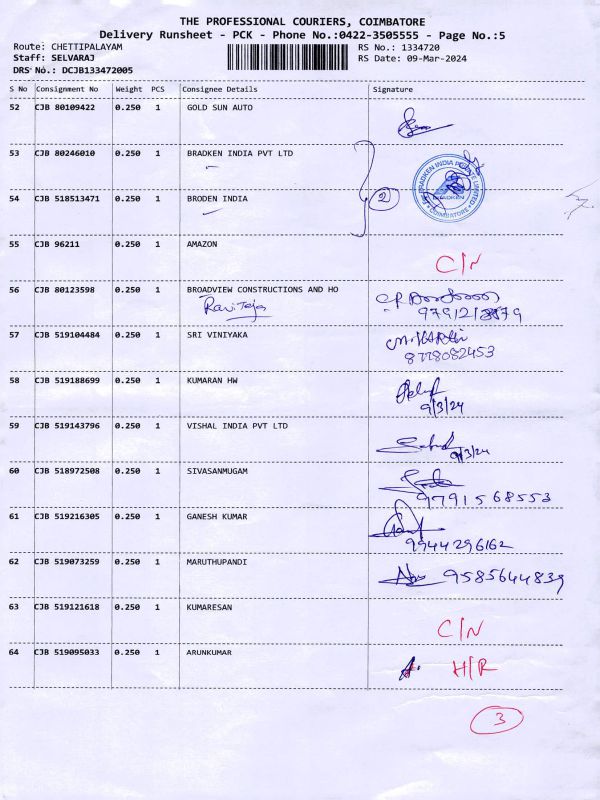 THE PROFESSIONAL COURIERS, COIMBATORE
Delivery Runsheet - PCK - Phone No.:0422-3505555 - Page No.:5
Route: CHETTIPALAYAM
RS No.: 1334720
Staff: SELVARAJ
RS Date: 09-Mar-2024
DRS No.: DCJB133472005
S No Consignment No Weight PCS Consignee Details Signature
52 CJB 80109422 0.250 1 GOLD SUN AUTO
53 CJB 80246010 0.250 1 BRADKEN INDIA PVT LTD
BRADKEN INDIA PRIVATE LIMITED
COIMBATORE
2
54 CJB 518513471 0.250 1 BRODEN INDIA
55 CJB 96211 0.250 1 AMAZON
C/N
56 CJB 80123598 0.250 1 BROADVIEW CONSTRUCTIONS AND HO
Ravi Teja
57 CJB 519104484 0.250 1 SRI VINIYAKA
8778082453
58 CJB 519188699 0.250 1 KUMARAN HW
9/3/24
59 CJB 519143796 0.250 1 VISHAL INDIA PVT LTD
9/3/24
60 CJB 518972508 0.250 1 SIVASANMUGAM
9791568553
61 CJB 519216305 0.250 1 GANESH KUMAR
9944296162
62 CJB 519073259 0.250 1 MARUTHUPANDI
9585644839
63 CJB 519121618 0.250 1 KUMARESAN
C/N
64 CJB 519095033 0.250 1 ARUNKUMAR
H/R
3